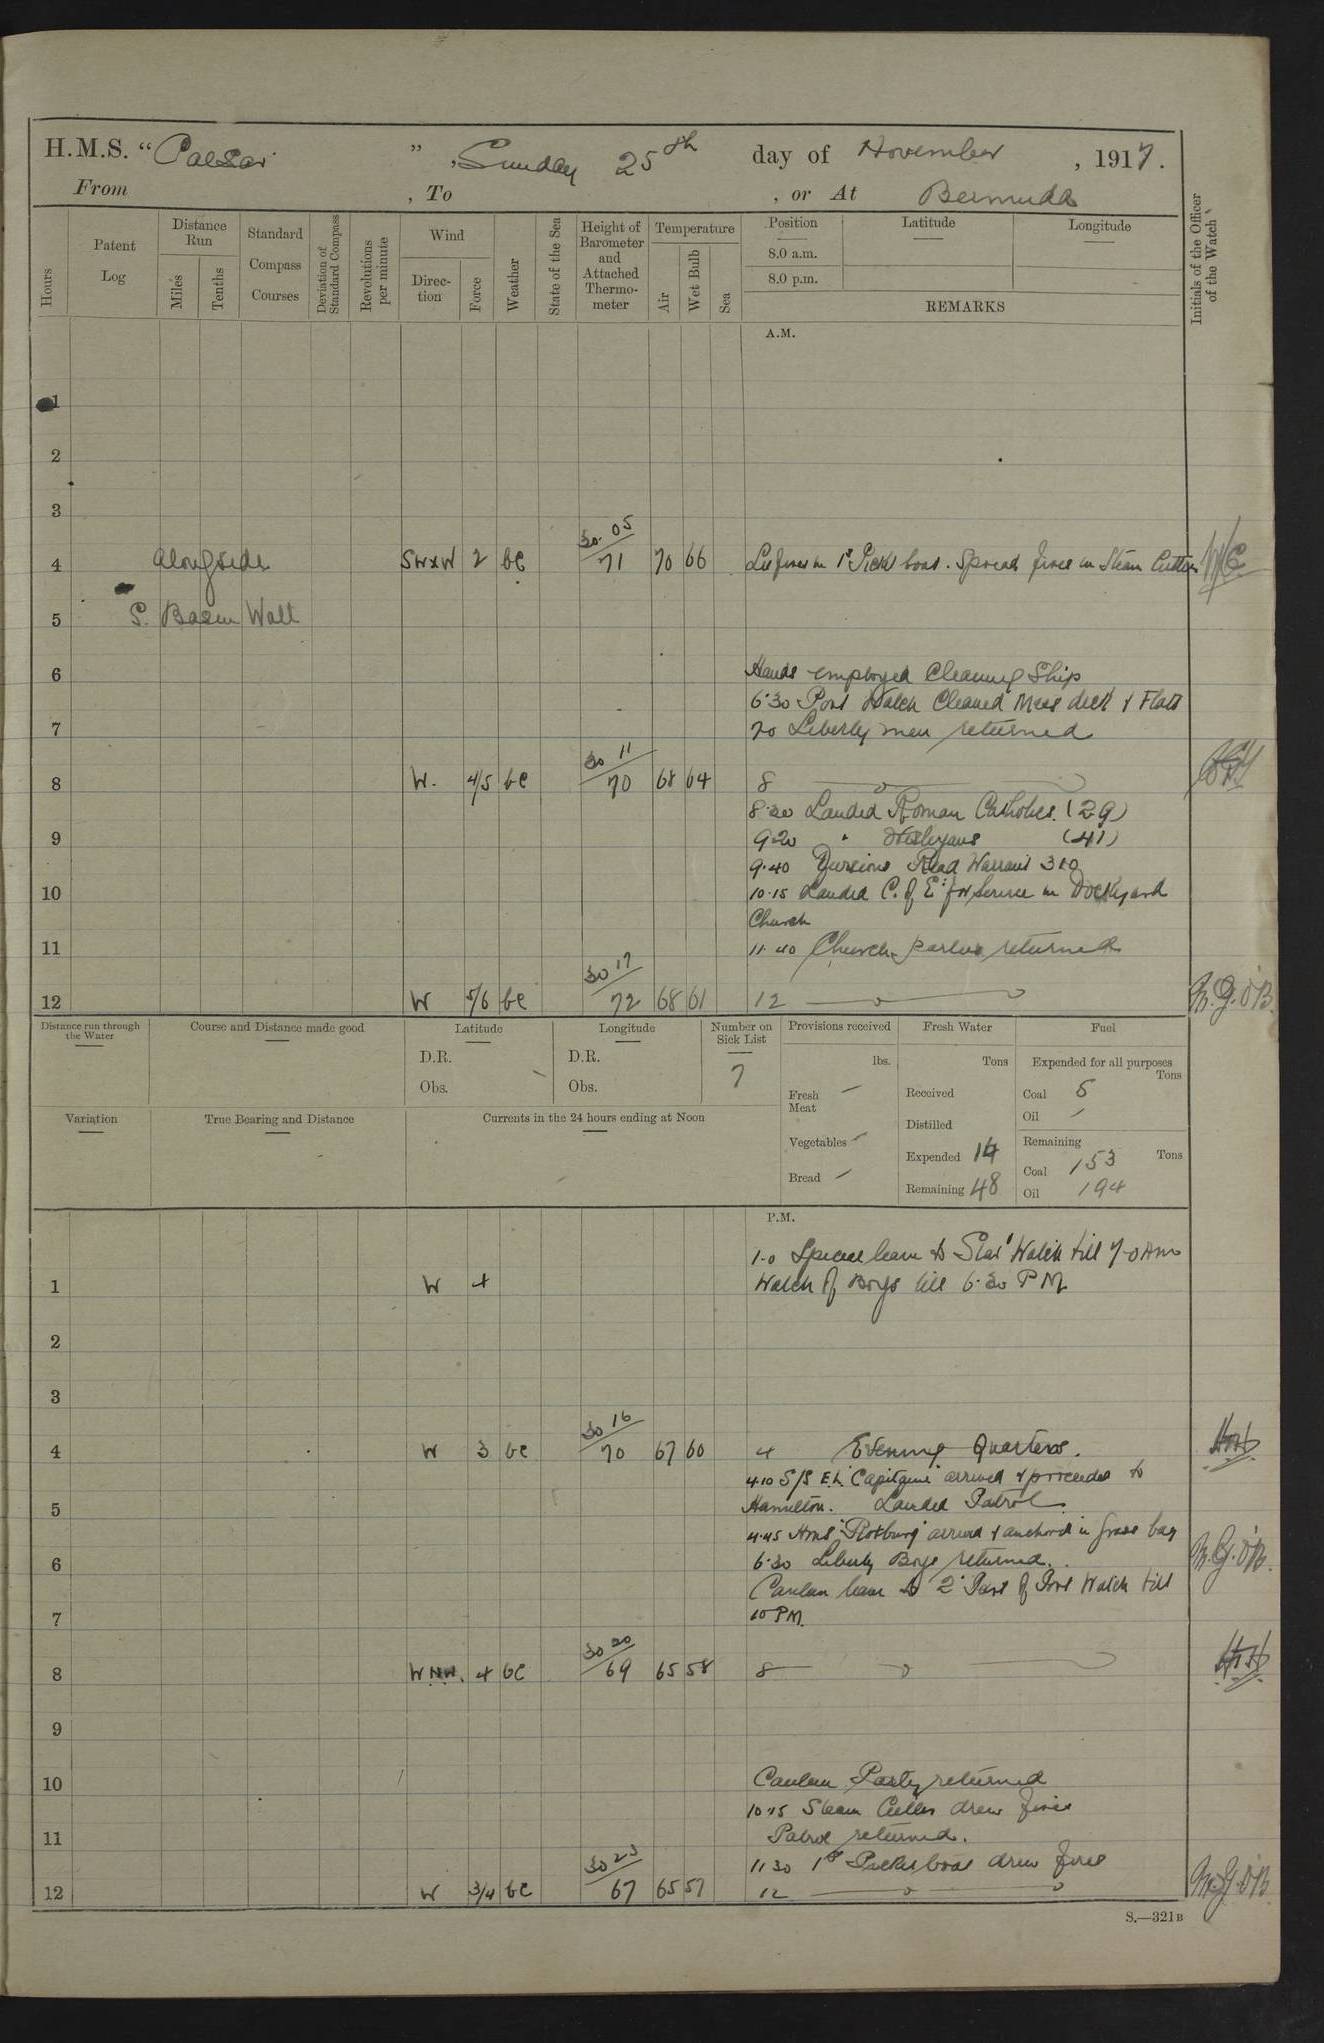 H.M.S. "Caesar", Sunday 25th day of November, 1917.
From , To , or At Bermuda
Hours
Patent Log
Distance Run
Miles
Tenths
Standard Compass Courses
Deviation of Standard Compass
Revolutions per minute
Wind
Direction
Force
Weather
State of the Sea
Height of Barometer and Attached Thermometer
Temperature
Air
Wet Bulb
Sea
Position
8.0 a.m.
8.0 p.m.
Latitude
Longitude
REMARKS
Initials of the Officer of the Watch
A.M.
1
2
3
30.05
4 alongside SWxW 2 bc 71 70 66 Lit fires in 1st Picket boat. Spread fires in Steam Cutter
5 S. Basin Wall
6 Hands employed Cleaning Ship
6.30 Port Watch Cleaned Mess deck & Flats
7 7.0 Liberty men returned
30 11
8 W. 4/5 bc 70 68 64 8
Landed Roman Catholics. (29)
9 9.20 " Wesleyans (41)
9.40 Divisions Read Warrant
10 10.15 Landed C. of E. for Service in Dockyard
Church
11 11.40 Church parties returned
30 17
12 W 5/6 bc 72 68 61 12 M.G.O'B.
Distance run through the Water
Course and Distance made good
Latitude
D.R.
Obs.
Longitude
D.R.
Obs.
Number on Sick List
7
Provisions received
lbs.
Fresh Meat
Vegetables
Bread
Fresh Water
Tons
Received
Distilled
Expended 14
Remaining 48
Fuel
Expended for all purposes
Tons
Coal 5
Oil
Remaining
Tons
Coal 153
Oil 194
Variation
True Bearing and Distance
Currents in the 24 hours ending at Noon
P.M.
1.0 Special leave to Star'd Watch till 7.0 Am
1 W 4 Watch of Boys till 6.30 PM
2
3
30 16
4 W 3 bc 70 67 60 4 Evening Quarters. HH
4.10 S/S arrived & proceeded to
5 Hamilton. Landed Patrol
4.45 Hms "Roxburg" arrived & anchored in Grass bay
6 6.30 Liberty Boys returned. M.G.O'B.
Canteen leave to 2nd Part of Port Watch till
7 10 PM.
30 20
8 WNW. 4 bc 69 65 58 8 HH
9
10 Canteen Party returned
10.15 Steam Cutter drew fires
11 Patrol returned.
30 23
11 30 1st Picket boat drew fires
12 W 3/4 bc 67 65 57 12 M.G.O'B
S.—321B